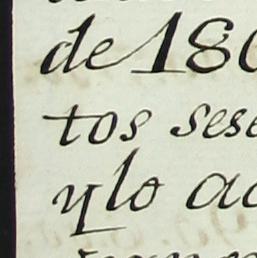 de 18
tos ses
y lo ac